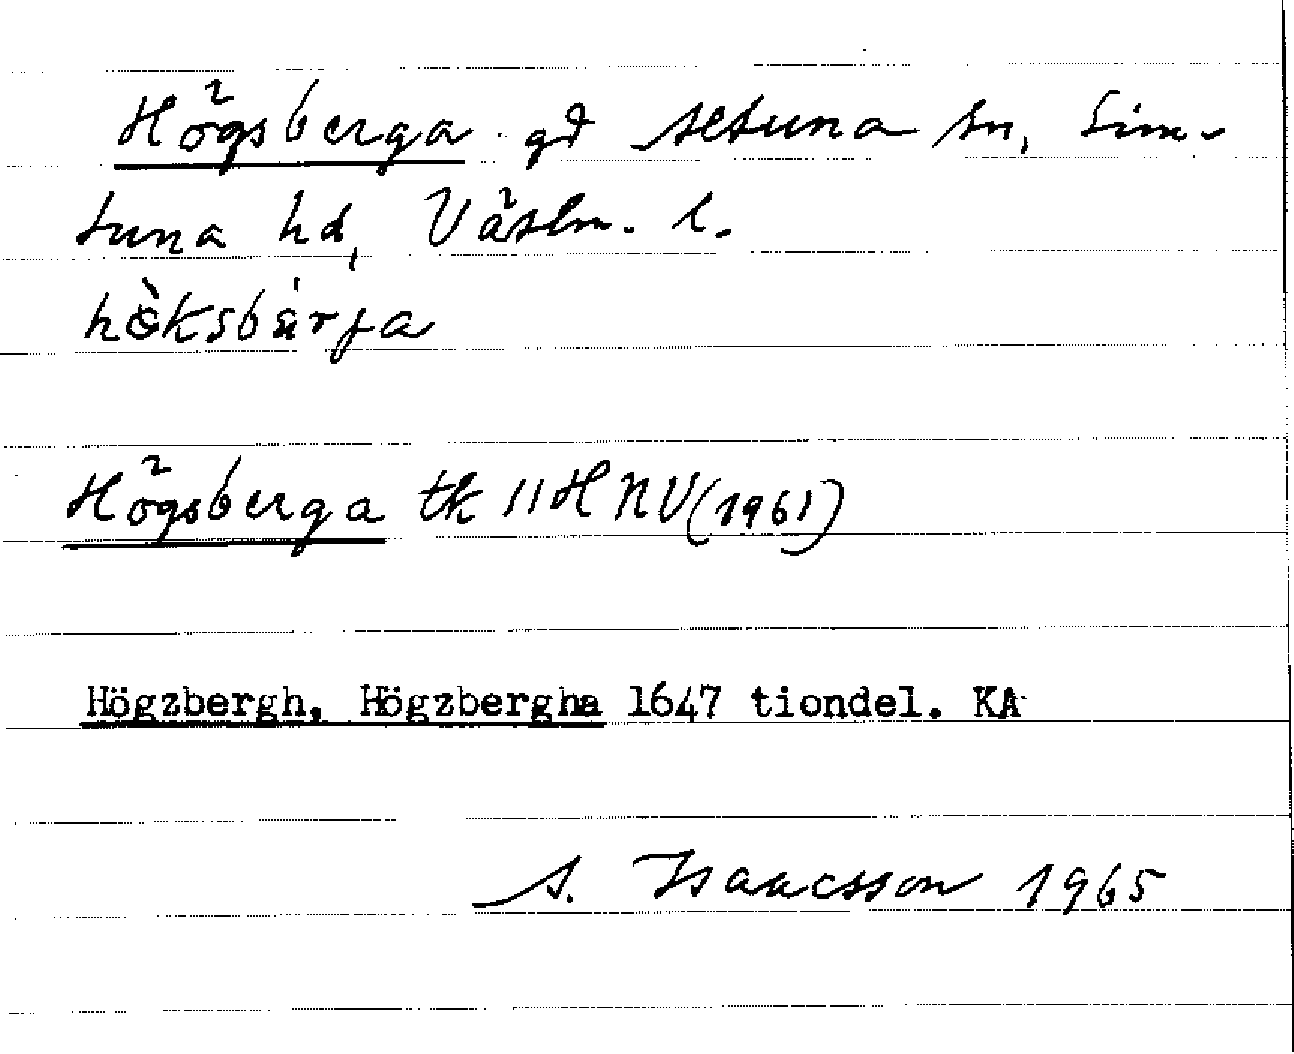 Högsberga gd Altuna sn, Sim-
tuna hd, Västm. l.
hö̀ksbä́rja
Högsberga tk 11H NV (1961)
Högzbergh, Högzbergha 1647 tiondel. KA
A. Isaacsson 1965